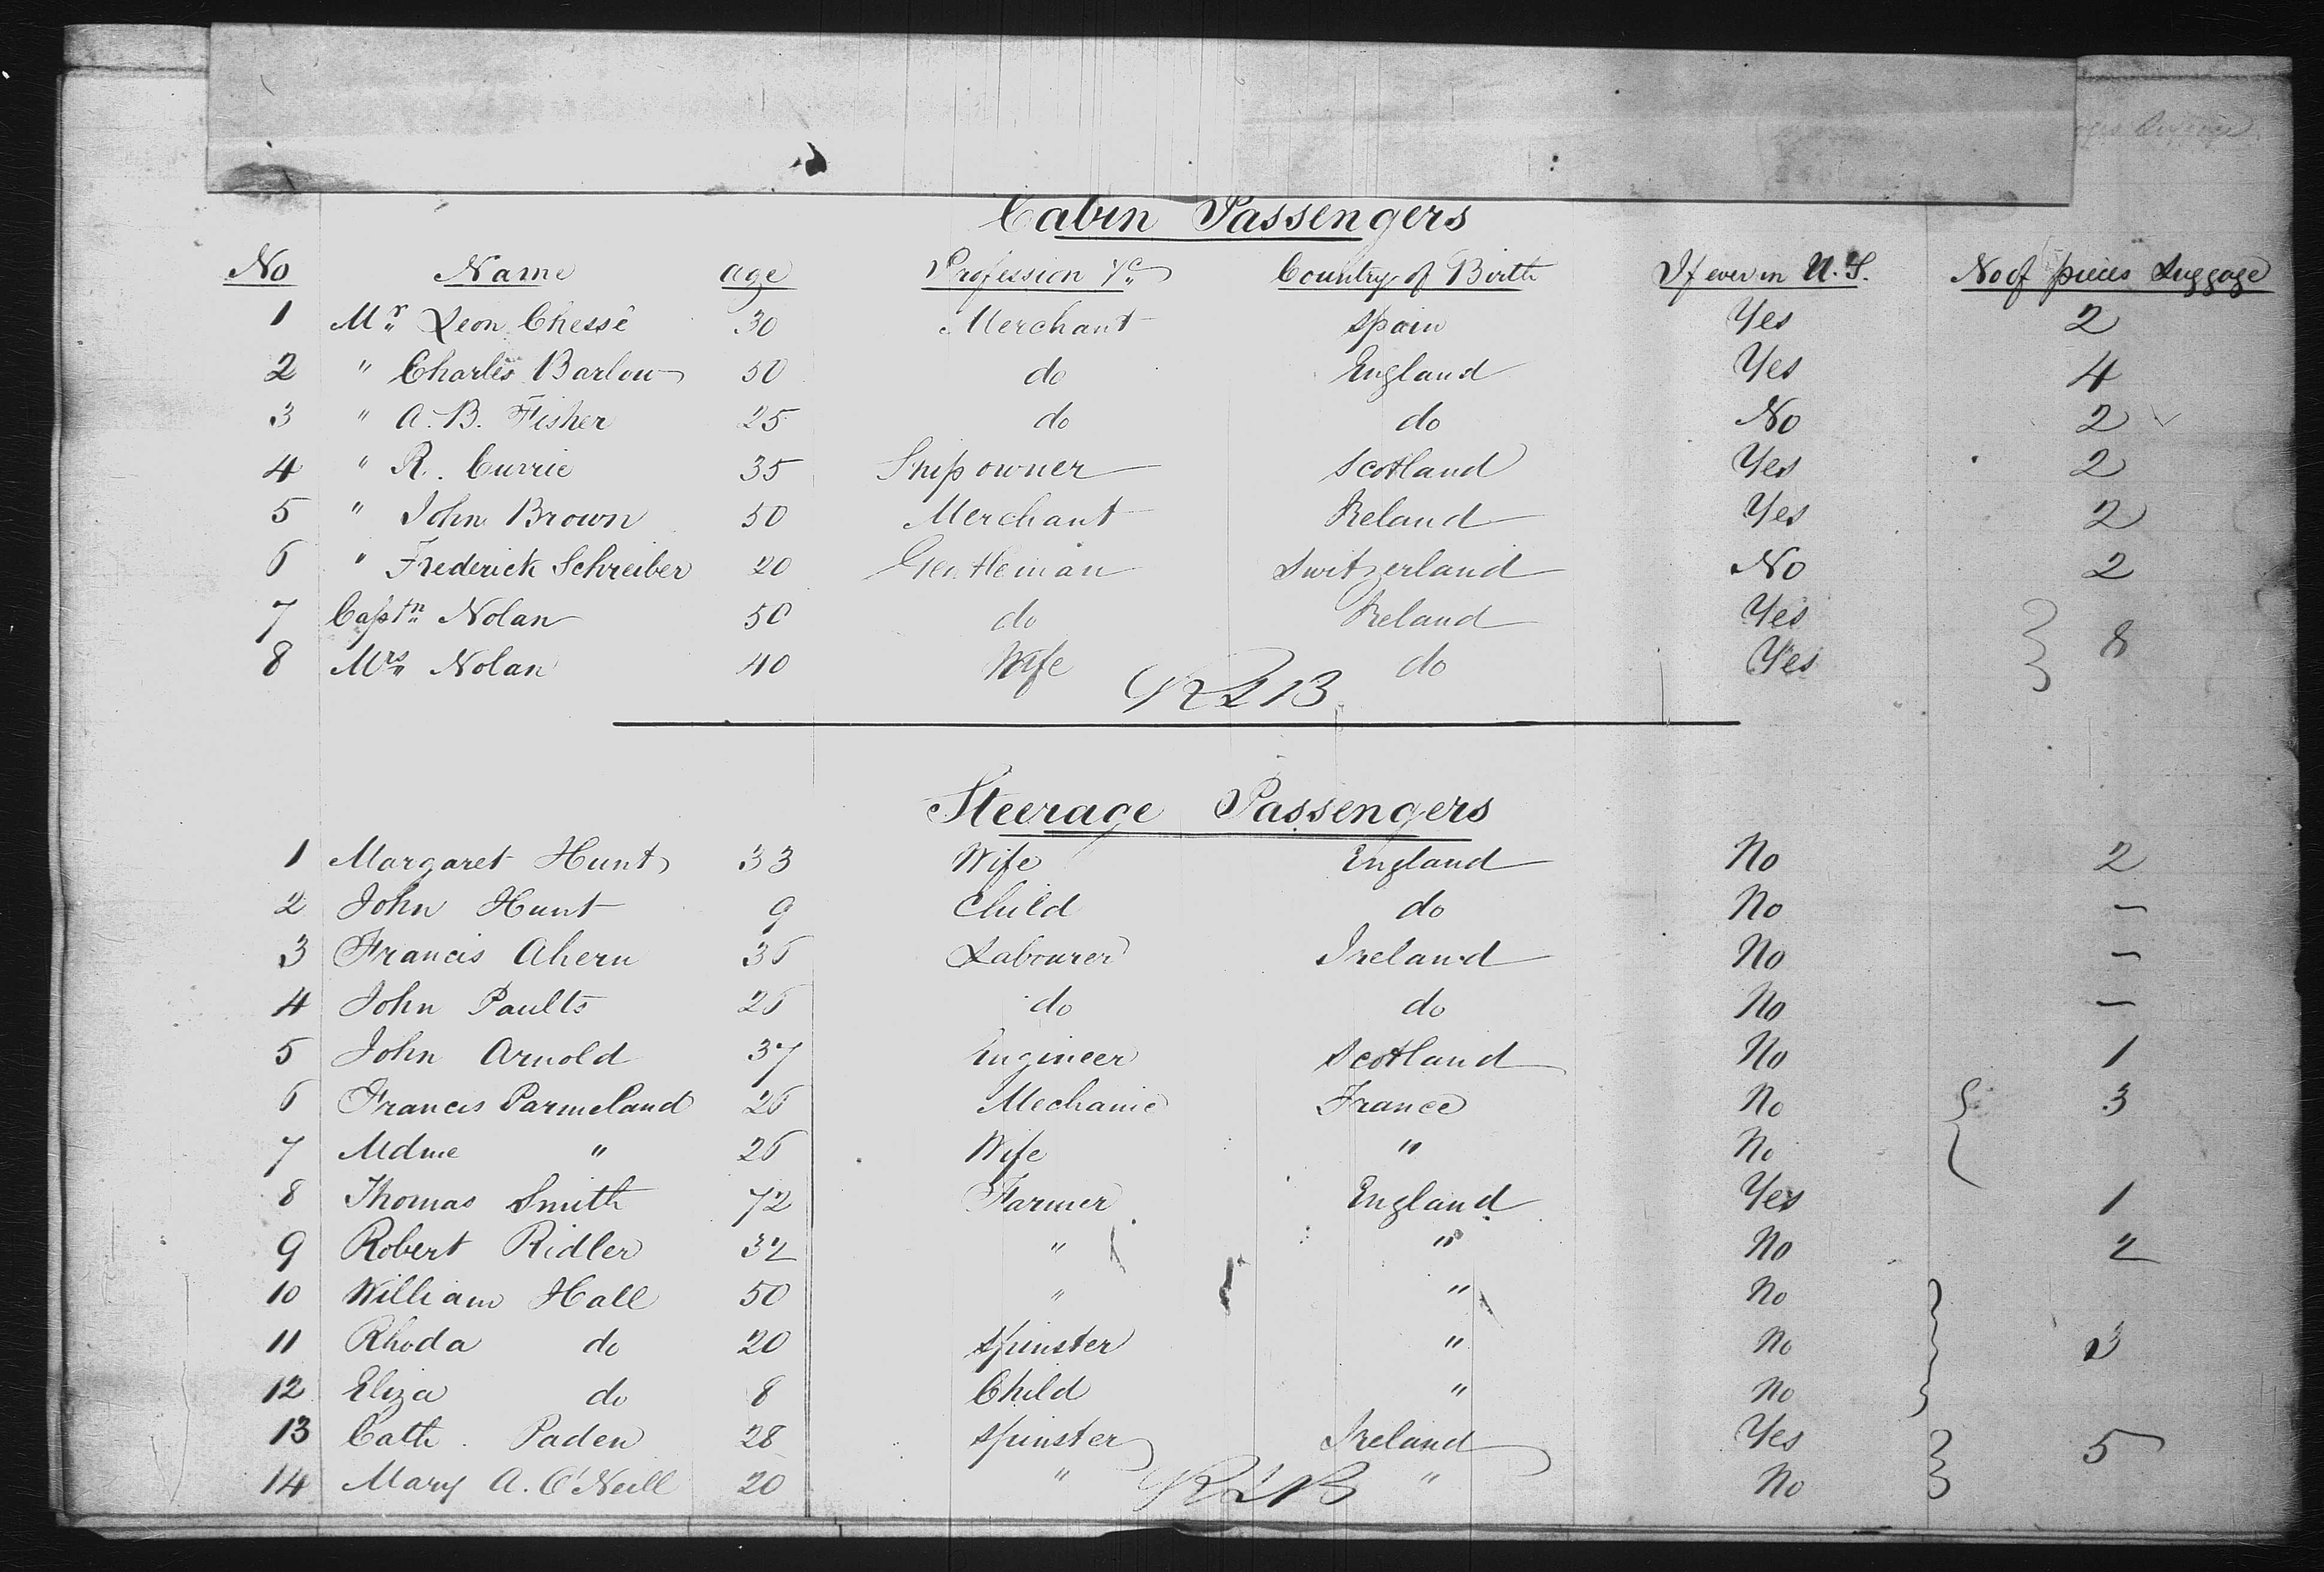 Cabin Passengers
No Name age Profession &c Country of Birth If ever in U.S. No of pieces Luggage
1 Mr Leon Chessé 30 Merchant Spain Yes 2
2 " Charles Barlow 50 do England Yes 4
3 " A. B. Fisher 25 do do No 2
4 " R. Currie 35 Ship owner Scotland Yes 2
5 " John Brown 50 Merchant Ireland Yes 2
6 " Frederick Schreiber 20 Gentleman Switzerland No 2
7 Captn Nolan 50 do Ireland Yes
8 Mrs Nolan 40 Wife do Yes 8
Steerage Passengers
1 Margaret Hunt 33 Wife England No 2
2 John Hunt 9 Child do No –
3 Francis Ahern 36 Labourer Ireland No –
4 John Paults 26 do do No –
5 John Arnold 37 Engineer Scotland No 1
6 Francis Parmeland 26 Mechanic France No 3
7 Mdme " 26 Wife " No
8 Thomas Smith 72 Farmer England Yes 1
9 Robert Ridler 32 " " No 2
10 William Hall 50 " " No
11 Rhoda do 20 Spinster " No 3
12 Eliza do 8 Child " No
13 Cath. Paden 28 Spinster Ireland Yes 5
14 Mary A. O'Neill 20 " " No